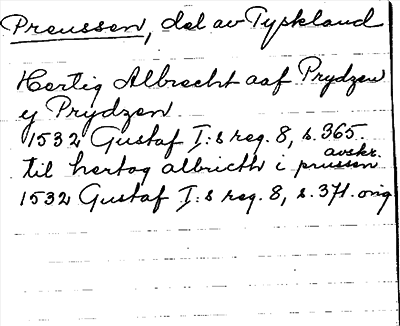 Preussen, del av Tyskland
Hertig Albrecht aaf Prydzen
y Prydzen
1532 Gustaf I:s reg. 8, s. 365.
avskr.
til hertog albricth i prussen
1532 Gustaf I:s reg. 8, s. 371. orig